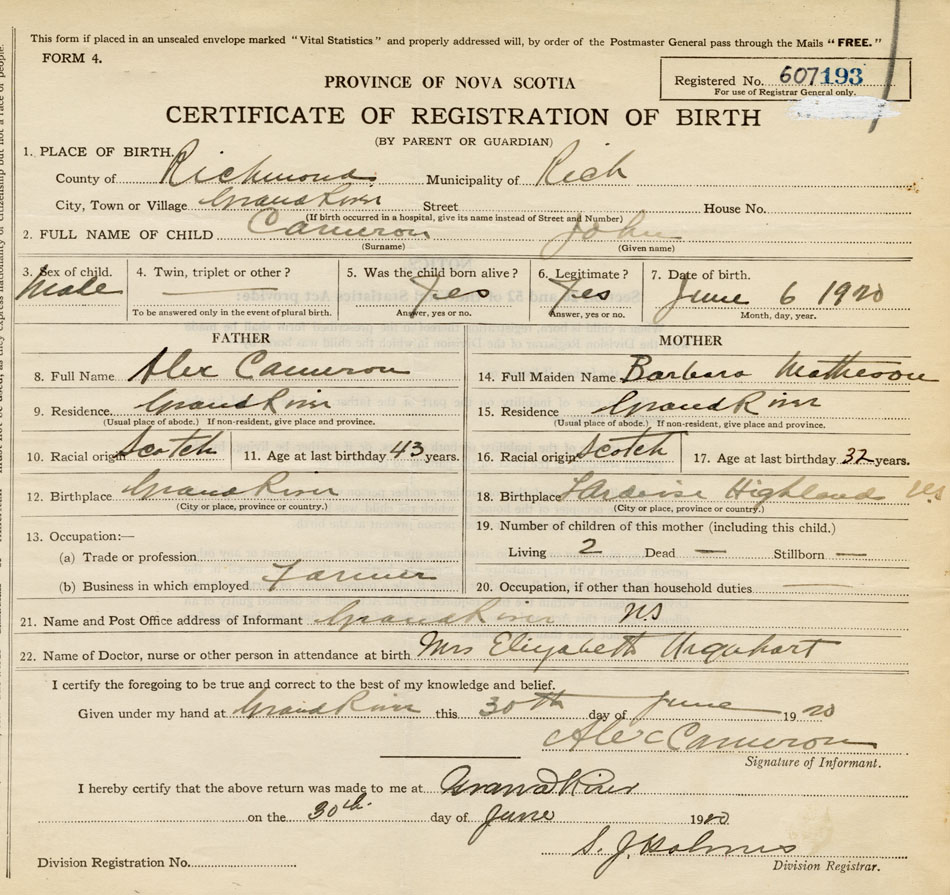 This form if placed in an unsealed envelope marked "Vital Statistics" and properly addressed will, by order of the Postmaster General pass through the Mails "FREE."
FORM 4.
PROVINCE OF NOVA SCOTIA
Registered No. 607193
For use of Registrar General only.
CERTIFICATE OF REGISTRATION OF BIRTH
(BY PARENT OR GUARDIAN)
1. PLACE OF BIRTH.
County of Richmond Municipality of Rich
City, Town or Village Grand River Street House No.
(If birth occurred in a hospital, give its name instead of Street and Number)
2. FULL NAME OF CHILD Cameron John
(Surname) (Given name)
3. Sex of child. 4. Twin, triplet or other? 5. Was the child born alive? 6. Legitimate? 7. Date of birth.
Male — Yes Yes June 6 1920
To be answered only in the event of plural birth. Answer, yes or no. Answer, yes or no. Month, day, year.
FATHER
8. Full Name Alex Cameron
9. Residence Grand River
(Usual place of abode.) If non-resident, give place and province.
10. Racial origin Scotch 11. Age at last birthday 43 years.
12. Birthplace Grand River
(City or place, province or country.)
13. Occupation:—
(a) Trade or profession
(b) Business in which employed Farmer
MOTHER
14. Full Maiden Name Barbara Matheson
15. Residence Grand River
(Usual place of abode.) If non-resident, give place and province.
16. Racial origin Scotch 17. Age at last birthday 32 years.
18. Birthplace Highlands NS
(City or place, province or country.)
19. Number of children of this mother (including this child.)
Living 2 Dead — Stillborn —
20. Occupation, if other than household duties
21. Name and Post Office address of Informant Grand River NS
22. Name of Doctor, nurse or other person in attendance at birth Mrs Elizabeth Urquhart
I certify the foregoing to be true and correct to the best of my knowledge and belief.
Given under my hand at Grand River this 30th day of June 1920
Alex Cameron
Signature of Informant.
I hereby certify that the above return was made to me at Grand River
on the 30th day of June 1920
S. J. Holmes
Division Registration No. Division Registrar.